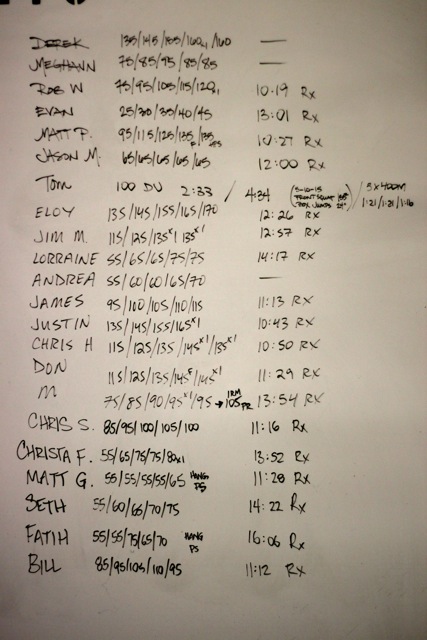 DEREK 135/145/155/160x1/160 —
MEGHANN 75/85/95/85/85 —
ROB W 75/95/105/115/120x1 10:19 Rx
EVAN 25/30/35/40/45 13:01 Rx
MATT P. 95/115/125/135/135 10:27 Rx
JASON M. 65/65/65/65/65 12:00 Rx
TOM 100 DU 2:33 / 4:34 (5-10-15 FRONT SQUAT BOX JUMPS 24") / 5x400M 1:21/1:21/1:16
ELOY 135/145/155/165/170 12:26 Rx
JIM M. 115/125/135x1/135x1 12:57 Rx
LORRAINE 55/65/65/75/75 14:17 Rx
ANDREA 55/60/60/65/70 —
JAMES 95/100/105/110/115 11:13 Rx
JUSTIN 135/145/155/165x1 10:43 Rx
CHRIS H 115/125/135/145x1/135x1 10:50 Rx
DON 115/125/135/145F/145x1 11:29 Rx
M 75/85/90/95x1/95 → 1RM 105 PR 13:54 Rx
CHRIS S. 85/95/100/105/100 11:16 Rx
CHRISTA F. 55/65/75/75/80x1 13:52 Rx
MATT G. 55/55/55/55/65 HANG PS 11:28 Rx
SETH 55/60/65/70/75 14:22 Rx
FATIH 55/55/75/65/70 HANG PS 16:06 Rx
BILL 85/95/105/110/95 11:12 Rx